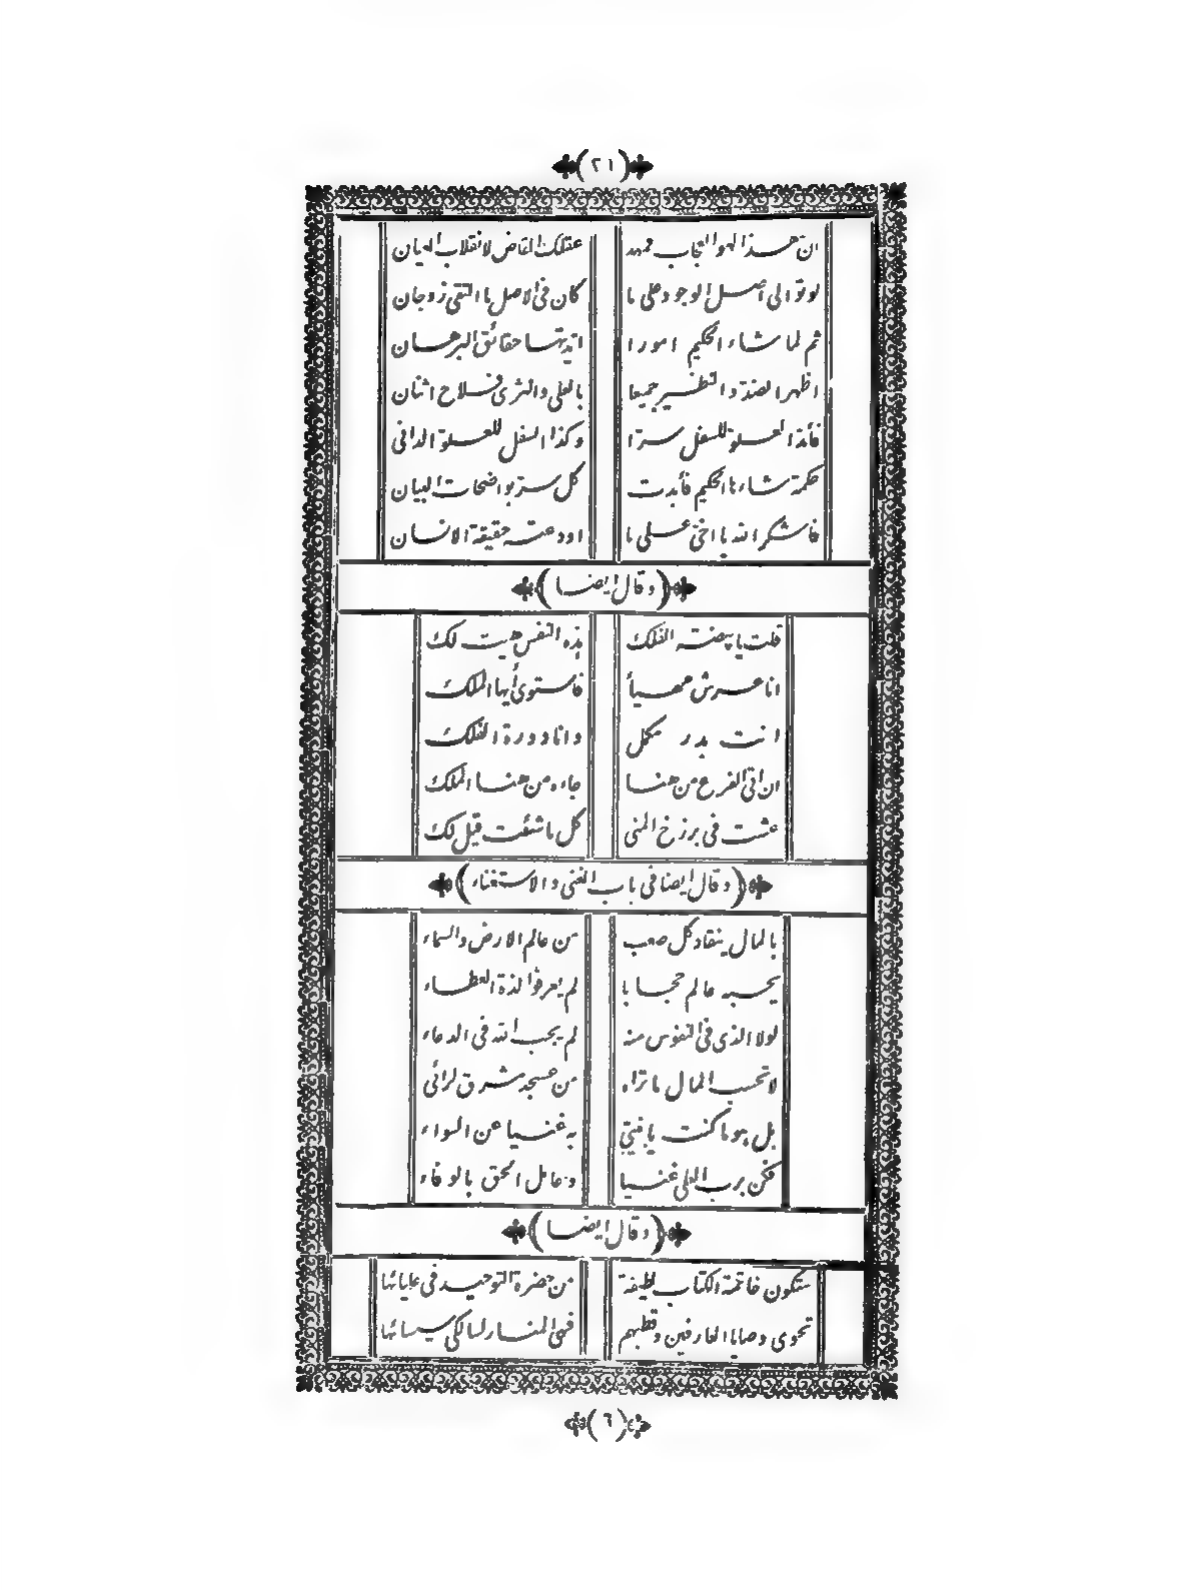 (٢١)
ان هذا لهو العجاب فمهد عقلك الغاض لانقلاب العيان
لو توالى اصل الوجود على ما كان فى الاصل ما التقى زوجان
ثم لما شاء الحكيم امورا ايدتها حقائق البرهان
اظهر الضد والنظير جميعا بالعلى والثرى فلاح اثنان
فأبد العلو للسفل سرا وكذا السفل للعلو الدانى
حكمة شاءها الحكيم فأبدت كل سر بواضحات البيان
فاشكر الله يا اخى على ما اودعته حقيقة الانسان
(وقال ايضا)
قلت يا بيضة الفلك هذه النفس هيت لك
انا عرش مهيأ فاستوى أيها الملك
انت بدر مكمل وانا دورة الفلك
ان اقى الفرع من هنا جاءه من هنا الملك
عشت فى برزخ المنى كل ما شئت قيل لك
(وقال ايضا فى باب الغنى والاستغناء)
بالمال ينقاد كل صعب من عالم الارض والسماء
يحسبه عالم حجابا لم يعرفوا لذة العطاء
لولا الذى فى النفوس منه لم يجب الله فى الدعاء
لا تحسب المال ما تراه من عسجد مشرق لرائى
بل هو ما كنت يا فتى به غنيا عن السواء
فكن برب العلى غنيا وعامل الحق بالوفاء
(وقال ايضا)
ستكون خاتمة الكتاب لطيفة من حضرة التوحيد فى عليائها
تحوى وصايا العارفين وقطبهم فهى المنار لسالكى سيسائها
(٦)